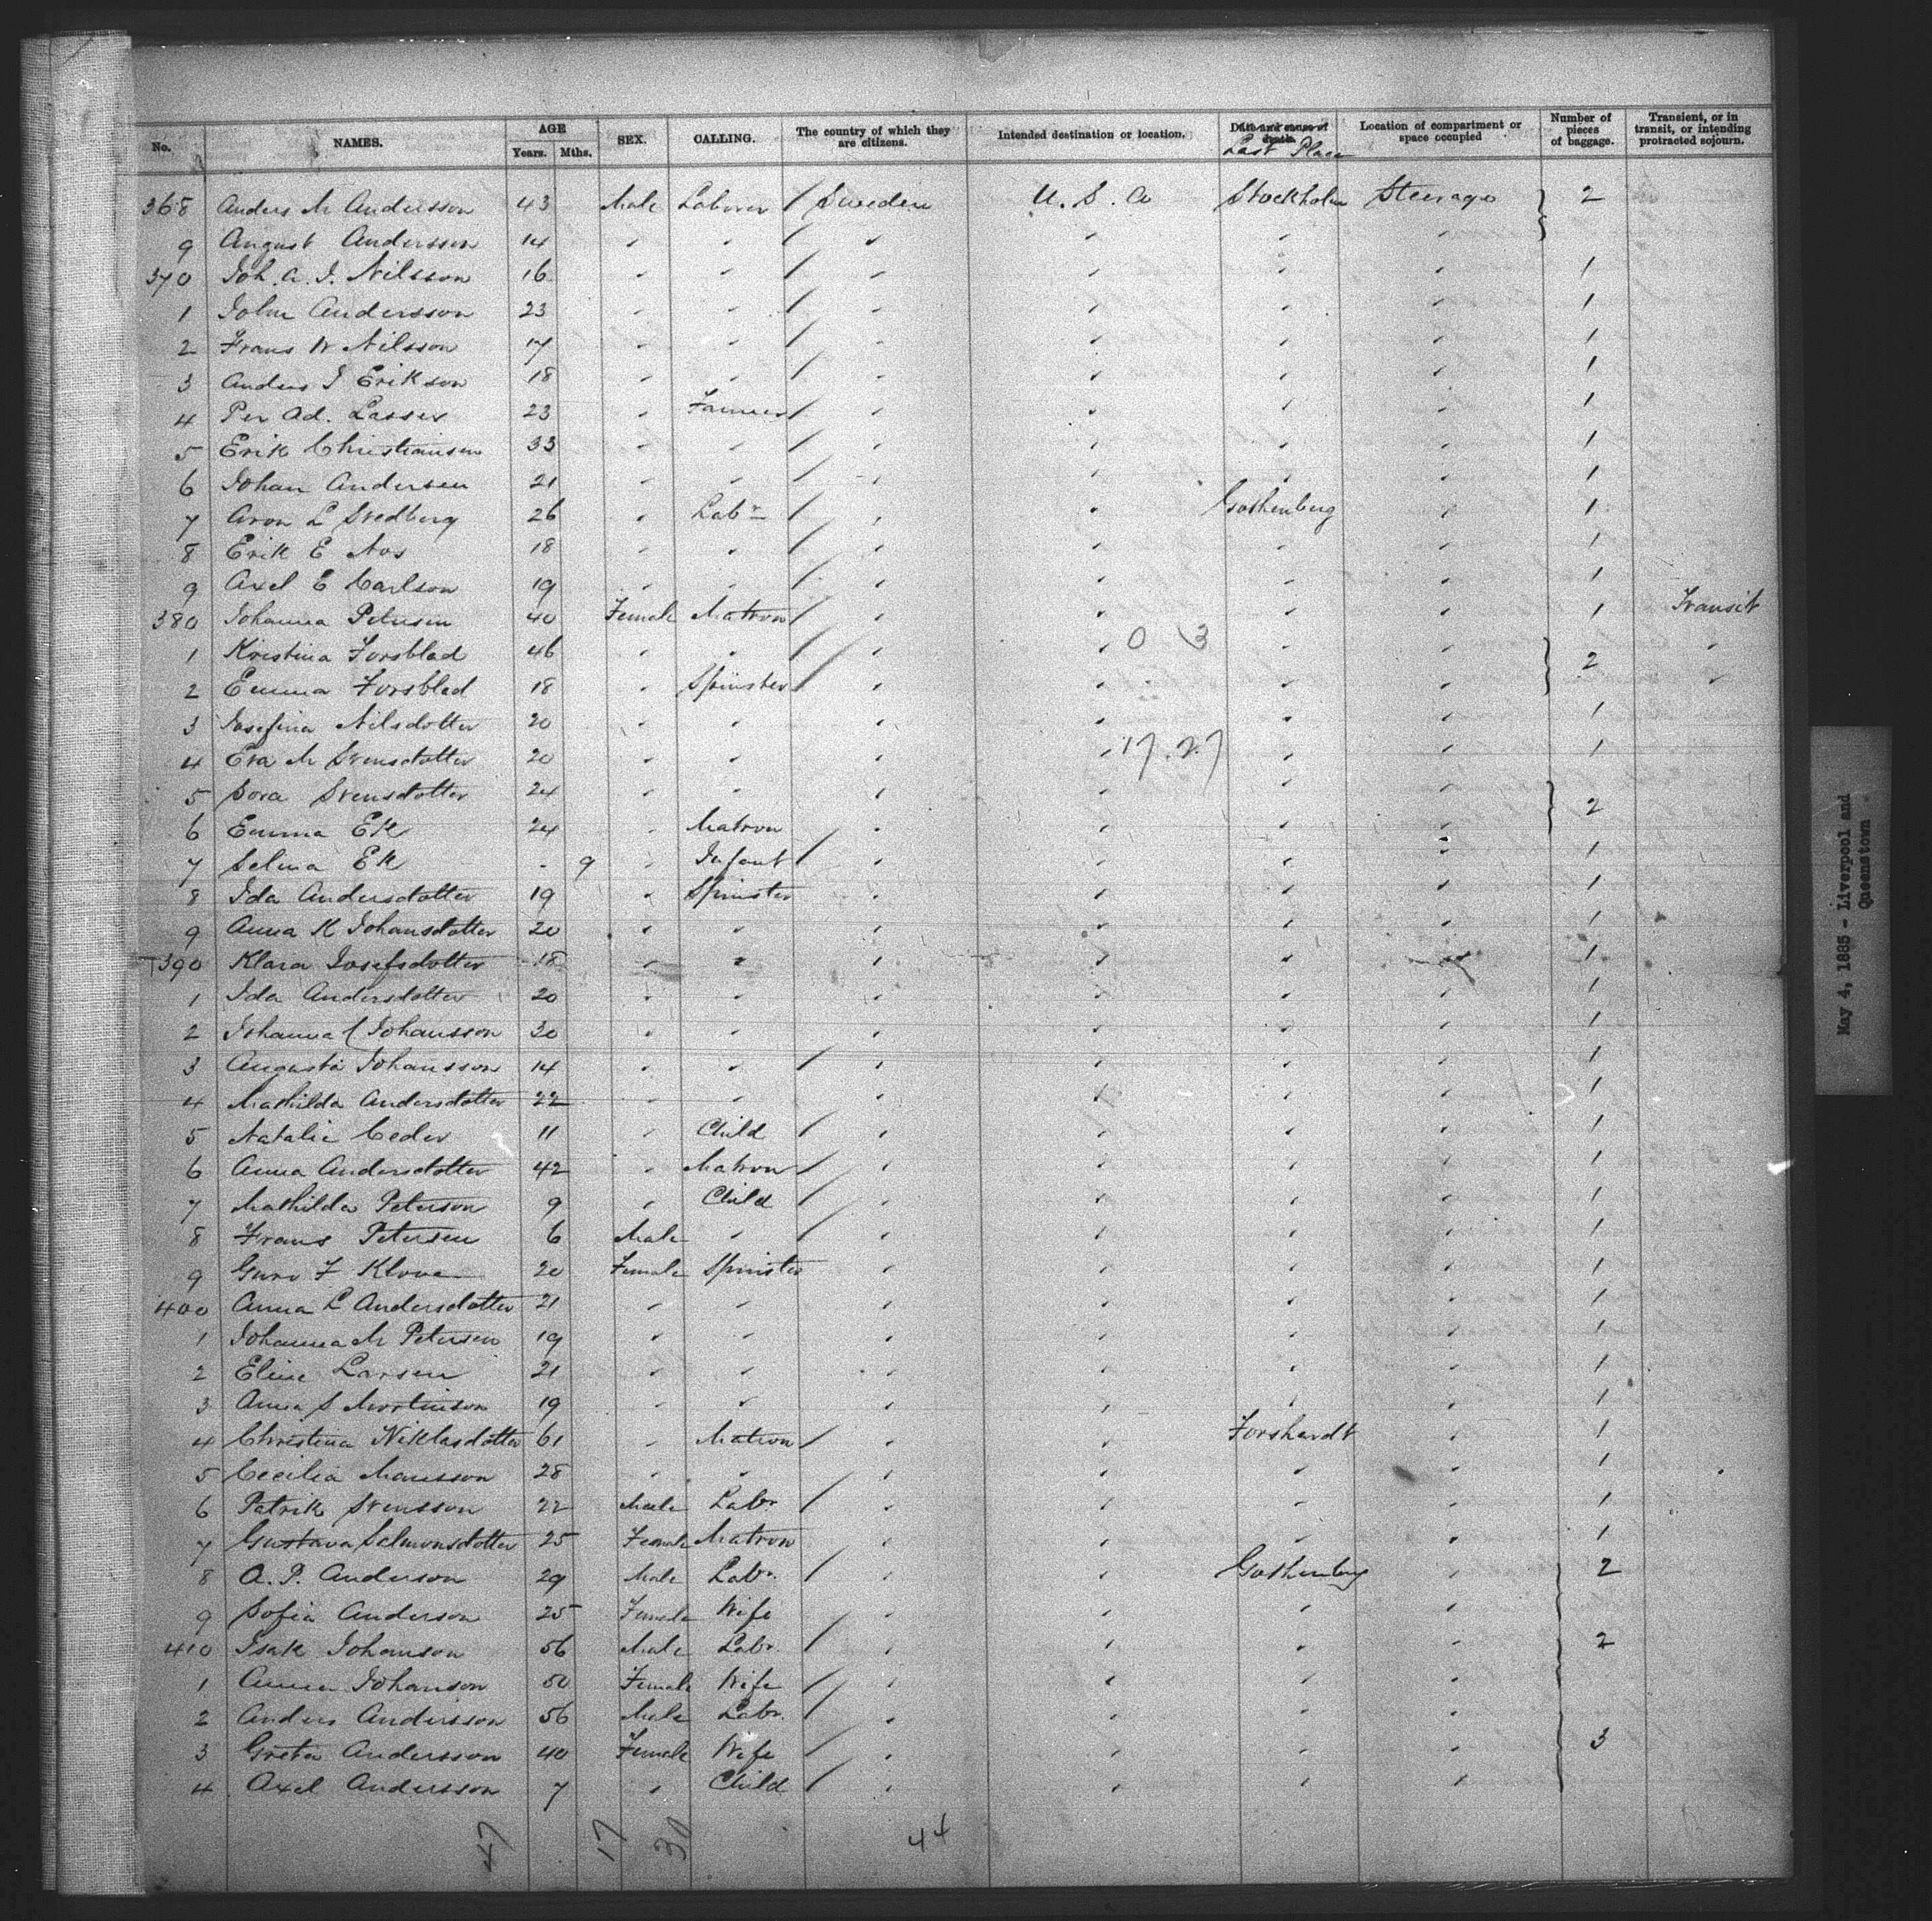 No. NAMES. AGE Years. Mths. SEX. CALLING. The country of which they are citizens. Intended destination or location. Date and cause of death. Last Place Location of compartment or space occupied Number of pieces of baggage. Transient, or in transit, or intending protracted sojourn.
368 Anders M Andersson 43 Male Laborer / Sweden U. S. A Stockholm Steerage } 2
9 August Andersson 14 " " / " " " " }
370 Joh. A. J. Nilsson 16 " " / " " " " 1
1 John Andersson 23 " " / " " " " 1
2 Frans W Nilsson 17 " " / " " " " 1
3 Anders J Erikson 18 " " / " " " " 1
4 Per Ad. Lasses 23 " Farmer / " " " " 1
5 Erik Christiansen 33 " " / " " " " 1
6 Johan Andersen 21 " " / " " " " 1
7 Aron L Svedberg 26 " Labr / " " Gothenberg " 1
8 Erik E Nos 18 " " / " " " " 1
9 Axel E Carlson 19 " " / " " " " 1
380 Johanna Petersen 40 Female Matron / " " " " 1 Transit
1 Kristina Forsblad 46 " " / " " 0 3 " " } 2 "
2 Emma Forsblad 18 " Spinster / " " " " } "
3 Josefina Nilsdotter 20 " " " " " " 1
4 Eva M Svensdotter 20 " " " " 17.27 " " 1
5 Sora Svensdotter 24 " " " " " " } 2
6 Emma Ek 24 " Matron / " " " " }
7 Selma Ek - 9 " Infant / " " " " 1
8 Ida Andersdotter 19 " Spinster " " " " 1
9 Anna K Johansdotter 20 " " " " " " 1
390 Klara Josefsdotter 18 " " " " " " 1
1 Ida Andersdotter 20 " " " " " " 1
2 Johanna C Johansson 30 " " " " " " 1
3 Augusta Johansson 14 " " / " " " " 1
4 Mathilda Andersdotter 22 " " " " " " 1
5 Natalie Ceder 11 " Child / " " " " 1
6 Anna Andersdotter 42 " Matron / " " " " 1
7 Mathilda Peterson 9 " Child / " " " " 1
8 Frans Petersen 6 Male " / " " " " 1
9 Guro F Klove 20 Female Spinster " " " " 1
400 Anna L Andersdotter 21 " " " " " " 1
1 Johanna M Petersen 19 " " " " " " 1
2 Eline Larsen 21 " " " " " " 1
3 Anna S Mortinson 19 " " " " " " 1
4 Christina Niklasdotter 61 " Matron / " " Forshardt " 1
5 Cecilia Mansson 28 " " / " " " " 1
6 Patrik Svensson 22 Male Labr / " " " " 1
7 Gustava Salmonsdotter 25 Female Matron " " " " 1
8 A. P. Anderson 29 Male Labr. / " " Gothenberg " } 2
9 Sofia Anderson 25 Female Wife / " " " " }
410 Isak Johanson 56 Male Labr. / " " " " } 2
1 Anna Johanson 50 Female Wife / " " " " }
2 Anders Andersson 56 Male Labr. / " " " " }
3 Greta Andersson 40 Female Wife / " " " " } 3
4 Axel Andersson 7 " Child / " " " " }
47 17 30 44
May 4, 1885 - Liverpool and
Queenstown